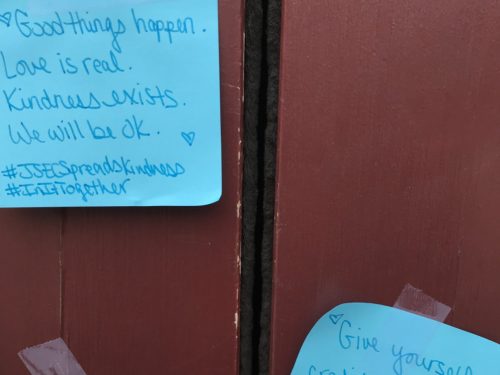 Good things happen.
Love is real.
Kindness exists.
We will be OK.
#JSECSpreadsKindness
#InItTogether
Give yourself